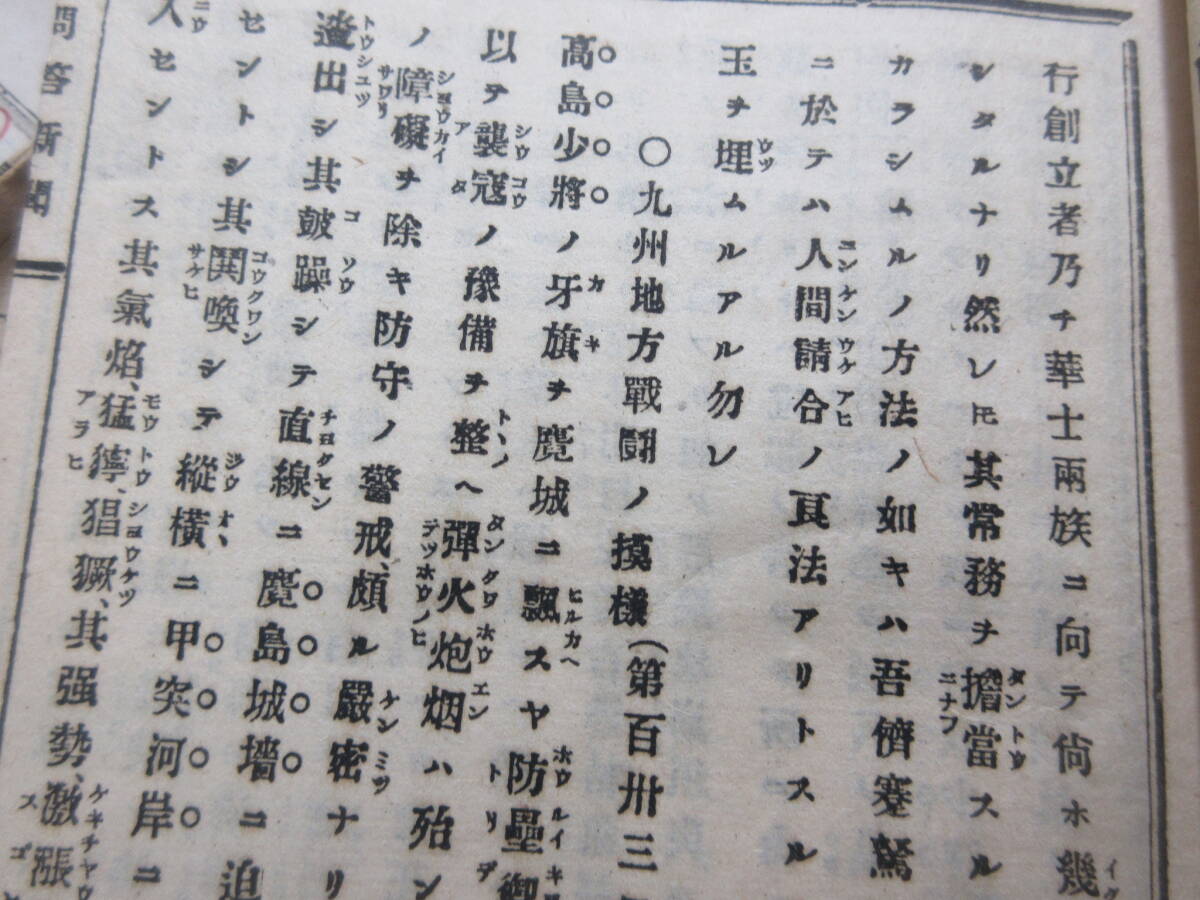 行創立者乃チ華士兩族ニ向テ尙ホ幾
シタルナリ然レ𪜈其常務ヲ擔當スル
カラシムルノ方法ノ如キハ吾儕蹇駑
ニ於テハ人間請合ノ良法アリトスル
玉ヲ埋ムルアル勿レ
〇九州地方戰鬪ノ摸樣(第百卅三
高島少將ノ牙旗ヲ麑城ニ飄スヤ防壘御
以テ襲寇ノ豫備ヲ整ヘ彈火炮烟ハ殆ン
ノ障礙ヲ除キ防守ノ警戒、頗ル嚴密ナリ
遶出シ其皷躁シテ直線ニ麑島城墻ニ迫
セントシ其鬨喚シテ縱橫ニ甲突河岸ニ
入セントス其氣焰、猛獰、猖獗、其强勢、激漲
問答新聞